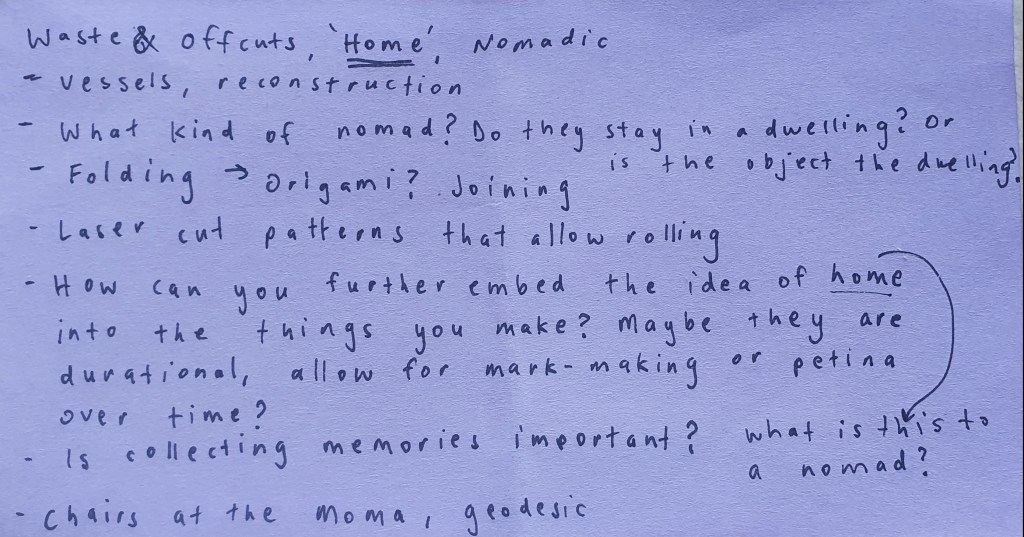 Waste & offcuts, 'Home', Nomadic
- vessels, reconstruction
- What kind of nomad? Do they stay in a dwelling? Or
is the object the dwelling?
- Folding → Origami? Joining
- Laser cut patterns that allow rolling
- How can you further embed the idea of home
into the things you make? Maybe they are
durational, allow for mark-making or petina
over time?
- Is collecting memories important?
what is this to
a nomad?
- Chairs at the moma, geodesic